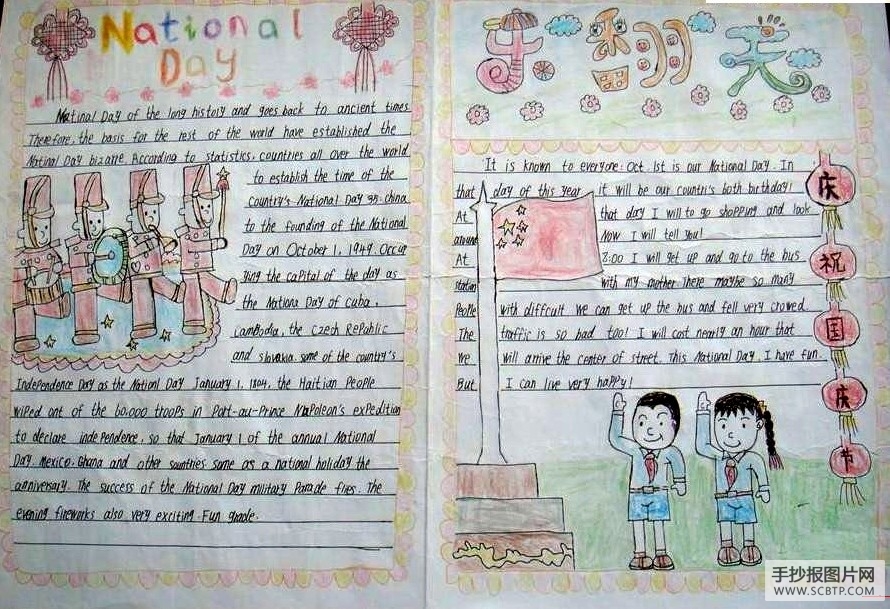 National
Day
Natinal Day of the long history and goes back to ancient times
Therefore. the basis for the rest of the world have established the
National Day bizarre. According to statistics, countries all over the world
to establish the time of the
country's National Day on. china
to the founding of the National
Day on October 1, 1949. Occup
ying the capital of the day as
the Nationa Day of cuba.
Cambodia, the Czech Republic
and slovakia. some of the country's
Independence Day as the Nationl Day January 1. 1804. the Haitian People
wiped ont of the 60.000 troops in Port-au-Prince Napoleon's expedition
to declare independence, so that January 1 of the annual National
Day. Mexico. Ghana and other sountries same as a national holiday the
anniversary. The success of the National Day military Parade flies. The
evening fireworks also very exciting. Fun
乐翻天
It is known to everyone: Oct. 1st is our National Day. In
that day of this year it will be our countri's both birthday!
At that day I will to go shopping and look
around Now I will tell you!
At 8:00 I will get up and go to the bus
station with my mother There maybe so many
People with diffcult We can get up the bus and fell very crowed
The traffic is so bad too! I will cost nearly an hour that
We will arrive the center of street. This National Day, I have fun.
But I can live very happy!
庆
祝
国
庆
节
手抄报图片网
WWW.SCBTP.COM